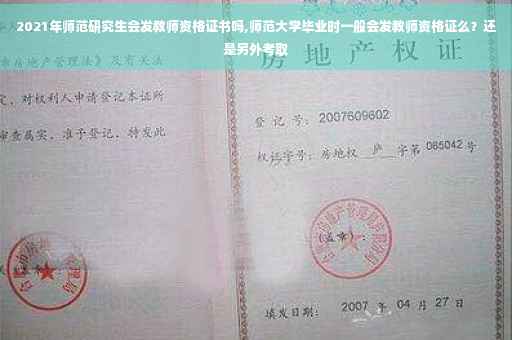 2021年师范研究生会发教师资格证书吗,师范大学毕业时一般会发教师资格证么？还
是另外考取
房地产权证
房地产管理法》及有关法
定，对权利人申请登记本证所
审查属实，准予登记，特发此
登记号：2007609602
权证字号：房地权 庐 字第 085042 号
(盖章)：
填发日期： 2007 年 04 月 27 日